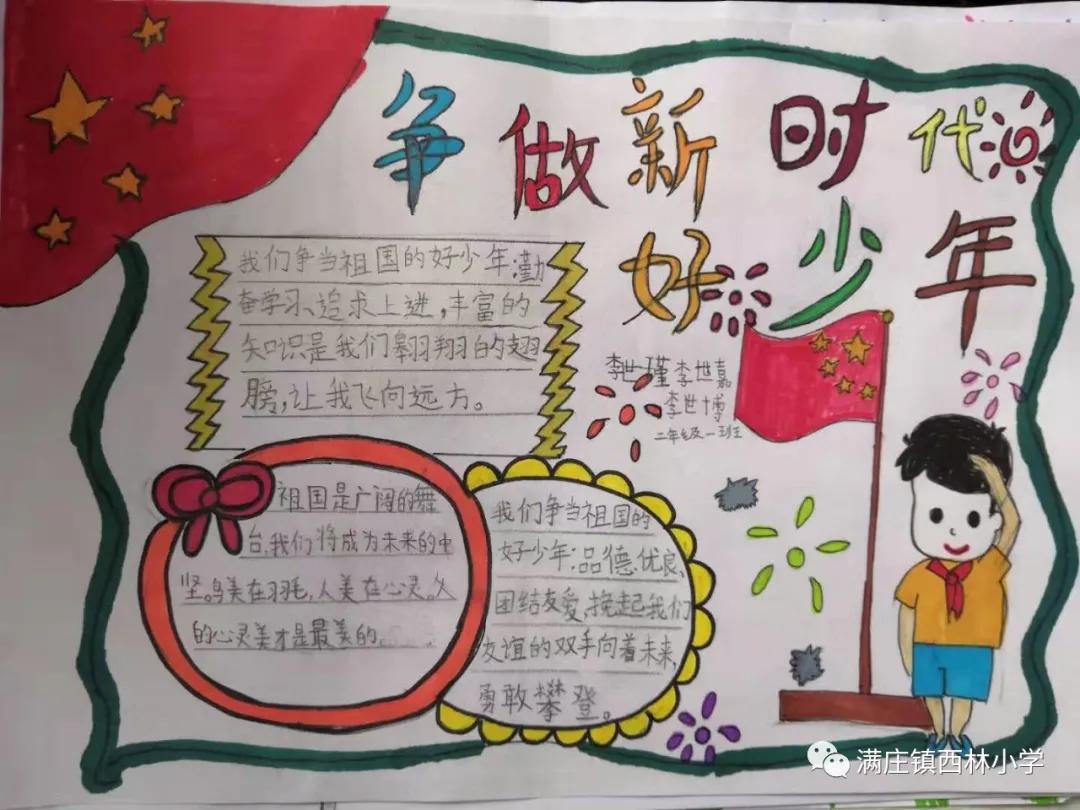 争做新时代
好少年
我们争当祖国的好少年:勤
奋学习、追求上进,丰富的
知识是我们翱翔的翅
膀,让我飞向远方。
李世瑾 李世嘉
李世博
二年级一班
祖国是广阔的舞
台,我们将成为未来的中
坚。鸟美在羽毛,人美在心灵。人
的心灵美才是最美的......
我们争当祖国的
好少年:品德优良、
团结友爱,挽起我们
友谊的双手向着未来,
勇敢攀登。
满庄镇西林小学